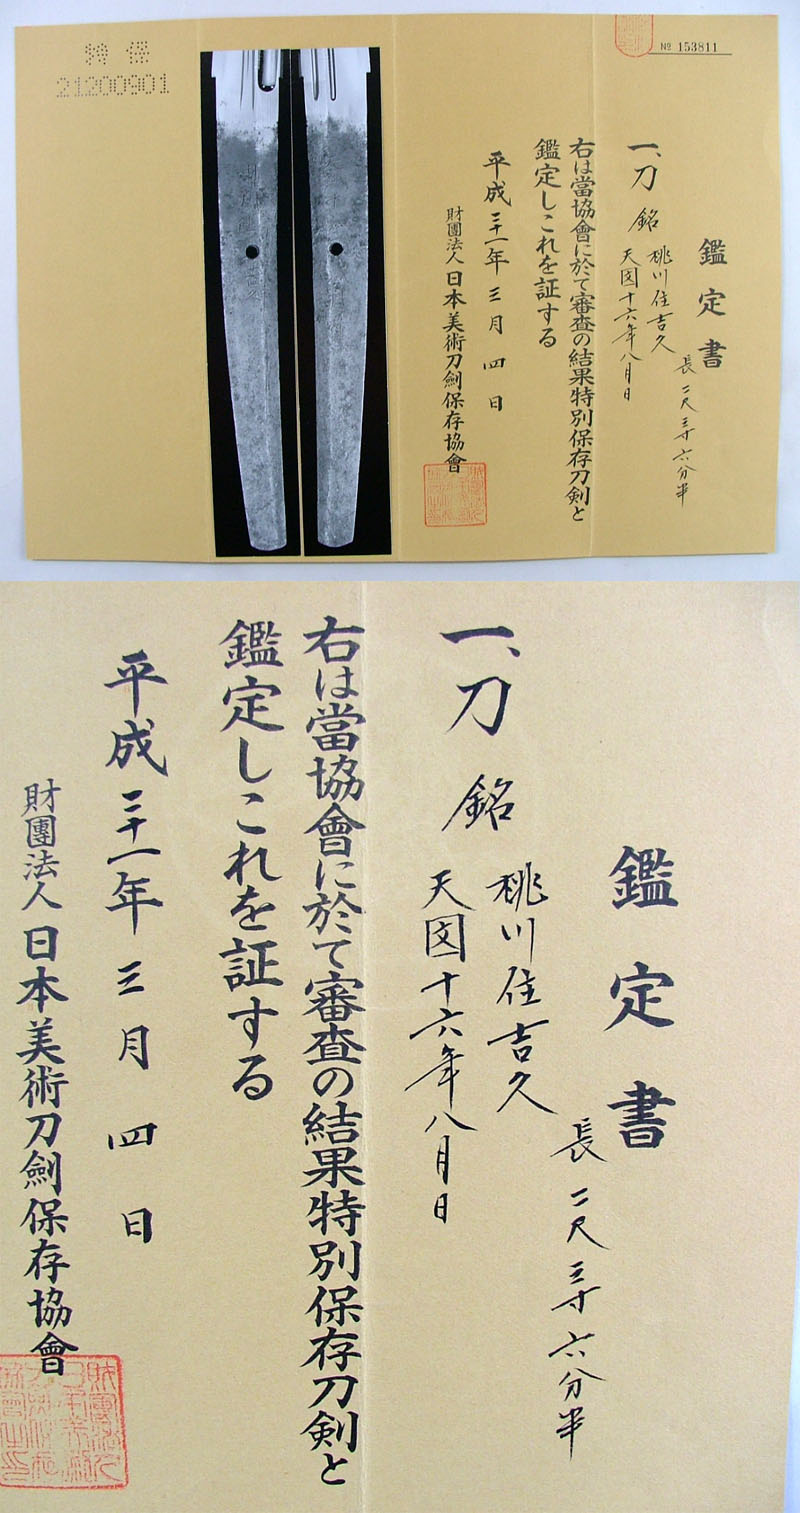 特保
21200901
№ 153811
鑑定書
長二尺三寸六分半
一、刀 銘 桃川住吉久
天図十六年八月日
右は當協會に於て審査の結果特別保存刀剣と
鑑定しこれを証する
平成二十一年三月四日
財團法人日本美術刀劍保存協會
鑑定書
長二尺三寸六分半
一、刀 銘 桃川住吉久
天図十六年八月日
右は當協會に於て審査の結果特別保存刀剣と
鑑定しこれを証する
平成二十一年三月四日
財團法人日本美術刀劍保存協會